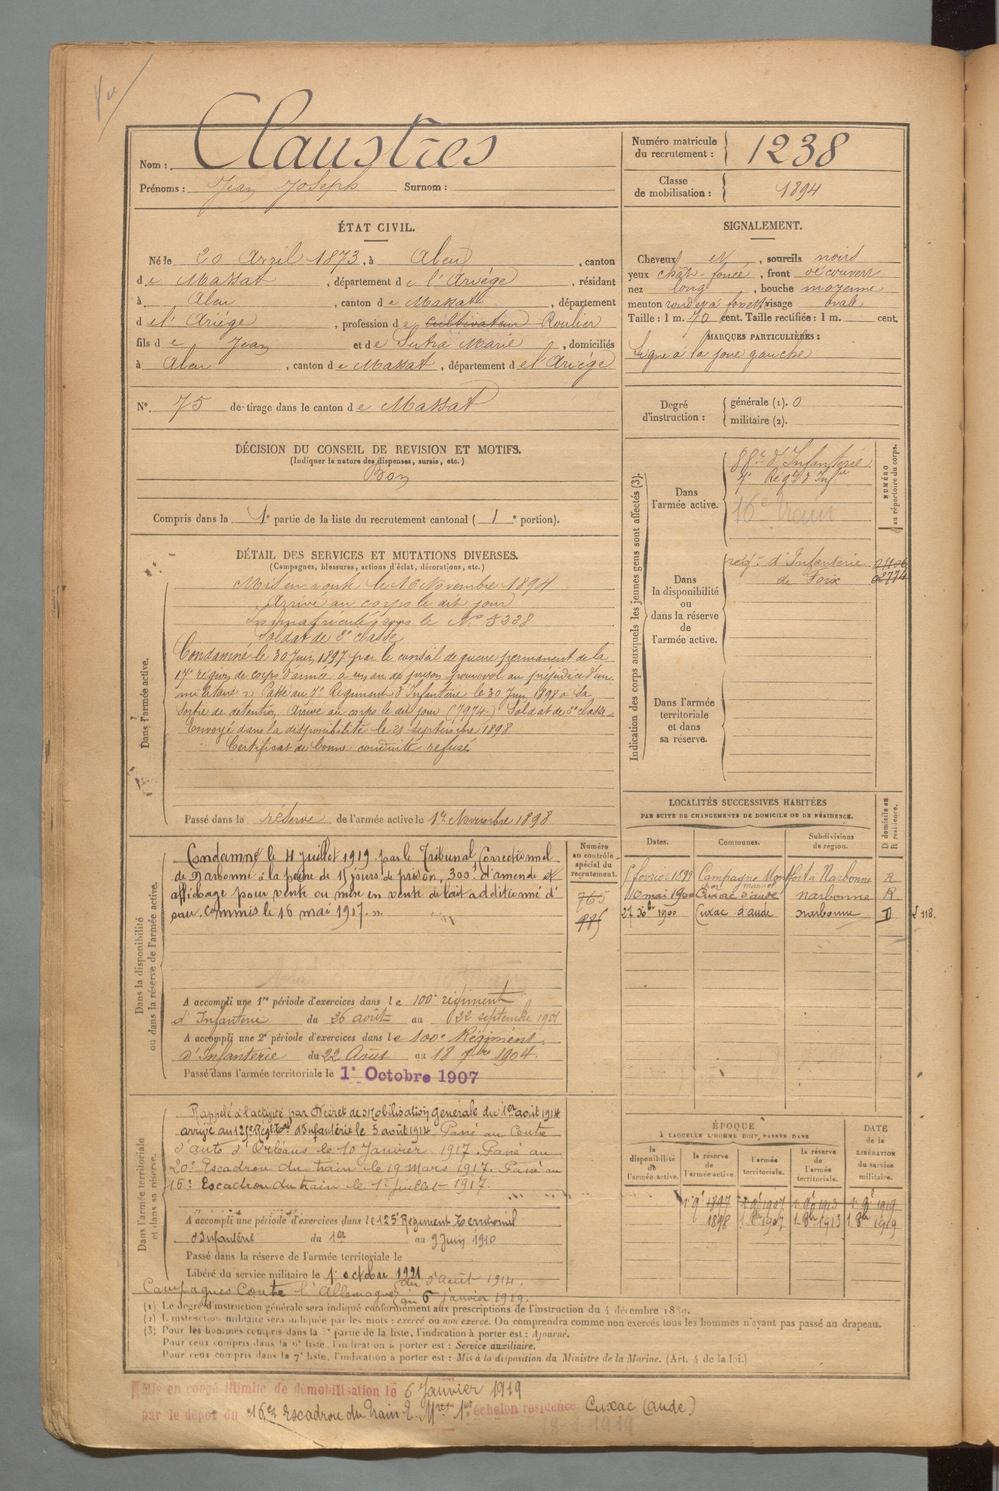 Vu
Nom : Claustres
Prénoms : Jean Joseph Surnom :
Numéro matricule du recrutement : 1238
Classe de mobilisation : 1894
ÉTAT CIVIL.
Né le 20 Avril 1873, à Aleu, canton
de Massat, département de l'Ariège, résidant
à Aleu, canton de Massat, département
de l'Ariège, profession de cultivateur Roulier
fils de Jean et de Sutra Marie, domiciliés
à Aleu, canton de Massat, département de l'Ariège
N° 75 de tirage dans le canton de Massat
SIGNALEMENT.
Cheveux et, sourcils noirs
yeux chât-foncé, front découvert
nez long, bouche moyenne
menton rond et à fossette visage ovale
Taille : 1 m. 70 cent. Taille rectifiée : 1 m. cent.
MARQUES PARTICULIÈRES :
Signe à la joue gauche
Degré d'instruction : générale (1). 0
militaire (2).
DÉCISION DU CONSEIL DE REVISION ET MOTIFS.
(Indiquer la nature des dispenses, sursis, etc.)
Bon
Compris dans la 1e partie de la liste du recrutement cantonal ( 1e portion).
DÉTAIL DES SERVICES ET MUTATIONS DIVERSES.
(Campagnes, blessures, actions d'éclat, décorations, etc.)
Dans l'armée active.
Mis en route le 16 Novembre 1894
Arrivé au corps le dit jour
Immatriculé sous le N° 5338
Soldat de 2e classe
Condamné le 30 Juin 1897 par le conseil de guerre permanent de la
17e région de corps d'armée à un an de prison pour vol au préjudice d'un
militaire. Passé au 7e Régiment d'Infanterie le 30 Juin 1898 à sa
sortie de détention. Arrivé au corps le dit jour (7974.) Soldat de 2e classe.
Envoyé dans la disponibilité le 21 septembre 1898
Certificat de bonne conduite refusé
Passé dans la réserve de l'armée active le 1er Novembre 1898
Indication des corps auxquels les jeunes gens sont affectés (3).
Dans l'armée active.
88e d'Infanterie
7e Régt d'Infie
16e Train
NUMÉRO au répertoire du corps.
Dans la disponibilité ou dans la réserve de l'armée active.
régt d'Infanterie
de Foix
02774
Dans l'armée territoriale et dans sa réserve.
LOCALITÉS SUCCESSIVES HABITÉES
PAR SUITE DE CHANGEMENTS DE DOMICILE OU DE RÉSIDENCE.
Dates. Communes. Subdivisions de région. D domicile ou R résidence.
février 1899 Campagne Montfort Narbonne R
10 mai 1900 Cuxac d'aude narbonne R
27 Xbre 1900 Cuxac d'aude narbonne D
L 118.
Dans la disponibilité ou dans la réserve de l'armée active.
Numéro au contrôle spécial du recrutement.
765
885
Condamné le 4 juillet 1919 par le Tribunal Correctionnel
de Narbonne à la peine de 15 jours de prison, 300f d'amende et
affichage pour vente ou mise en vente de lait additionné d'
eau, commis le 16 mai 1917.
A accompli une 1re période d'exercices dans le 100e régiment
d'Infanterie du 26 août au 22 septembre 1901
A accompli une 2e période d'exercices dans le 100e Régiment
d'Infanterie du 22 Août au 18 7bre 1904.
Passé dans l'armée territoriale le 1er Octobre 1907
Dans l'armée territoriale et dans sa réserve.
Rappelé à l'activité par Décret de Mobilisation générale du 1er août 1914
arrivé au 125e Régt Tal d'Infanterie le 5 août 1914. Passé au Centre
d'auto d'Orléans le 10 Janvier 1917. Passé au
20e Escadron du train le 19 mars 1917. Passé au
16e Escadron du train le 1er juillet 1917.
A accompli une période d'exercices dans le 125e Régiment Territorial
d'Infanterie du 1er au 9 Juin 1910
Passé dans la réserve de l'armée territoriale le
Libéré du service militaire le 1er octobre 1921
Campagnes Contre l'Allemagne du 5 août 1914.
au 6 janvier 1919.
ÉPOQUE
À LAQUELLE L'HOMME DOIT PASSER DANS
la disponibilité de l'armée active. la réserve de l'armée active. l'armée territoriale. la réserve de l'armée territoriale.
DATE DE LA LIBÉRATION du service militaire.
1897 1907 1913 1919
1898 1 8bre 1907 1 8bre 1913 1 8bre 1919
(1) Le degré d'instruction générale sera indiqué conformément aux prescriptions de l'instruction du 4 décembre 1889.
(2) L'instruction militaire sera indiquée par les mots : exercé ou non exercé. On comprendra comme non exercés tous les hommes n'ayant pas passé au drapeau.
(3) Pour les hommes compris dans la 5e partie de la liste, l'indication à porter est : Ajourné.
Pour ceux compris dans la 6e liste, l'indication à porter est : Service auxiliaire.
Pour ceux compris dans la 7e liste, l'indication à porter est : Mis à la disposition du Ministre de la Marine. (Art. 4 de la loi.)
Mis en congé illimité de démobilisation le 6 Janvier 1919
par le dépôt du 16e Escadron du Train E. Mres 1er échelon résidence Cuxac (aude)
18-1-1919